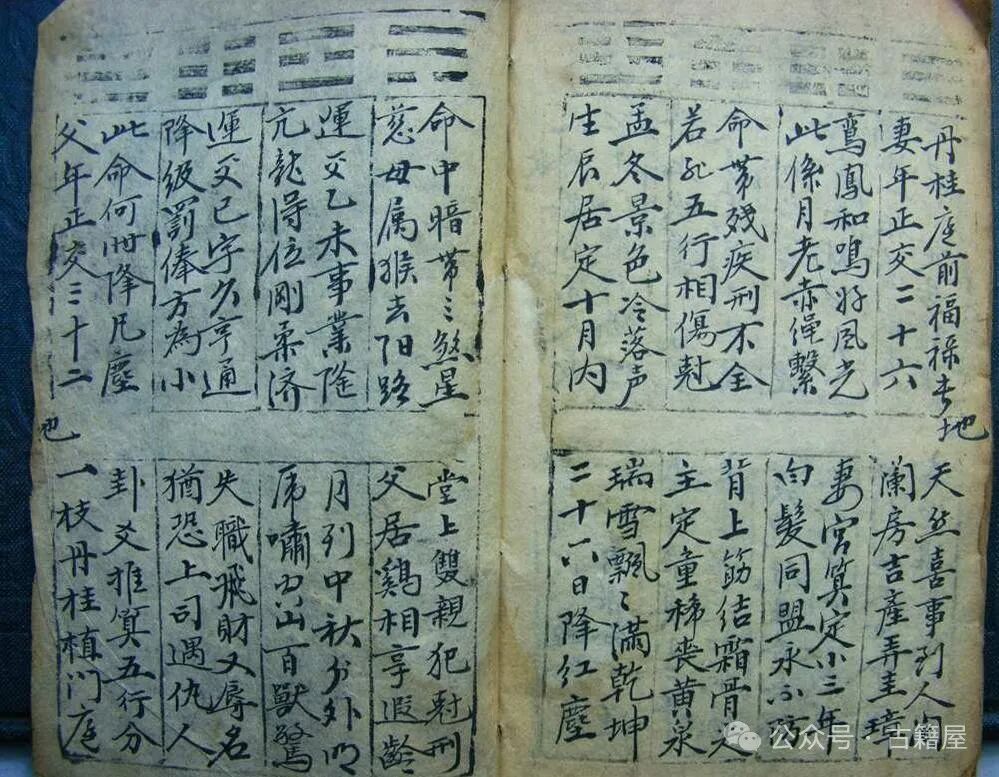 丹桂庭前福禄地
妻年正交二十六
鸞鳳和鳴好風光
此係月老赤绳繫
命带残疾刑不全
若非五行相傷尅
孟冬景色冷落声
生辰居定十月内
天然喜事到人间
阑房吉產弄圭璋
妻宫算定小三年
白髮同盟永不防
背上筋结霜骨
主定童稀丧黄泉
瑞雪飄〻满乾坤
二十六日降红塵
命中暗带三煞星
慈母属猴去阳路
運交乙未事業隆
亢龍得位剛柔济
運交巳字久亨通
降级罰俸方為小
此命何时降凡塵
父年正交三十二
也
堂上雙親犯尅刑
父居鷄相享遐齡
月到中秋分外明
虎嘯出山百獸驚
失職飛財又辱名
猶恐上司遇仇人
卦爻推算五行分
一枝丹桂植门庭
公众号·古籍屋